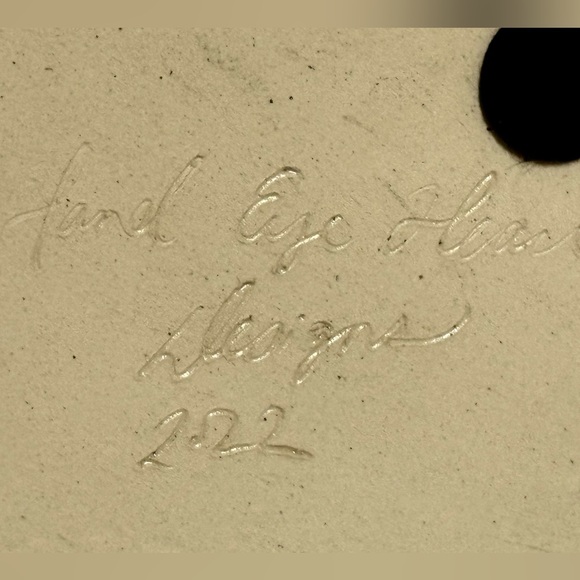 Hand Eye Hear
Designs
2022